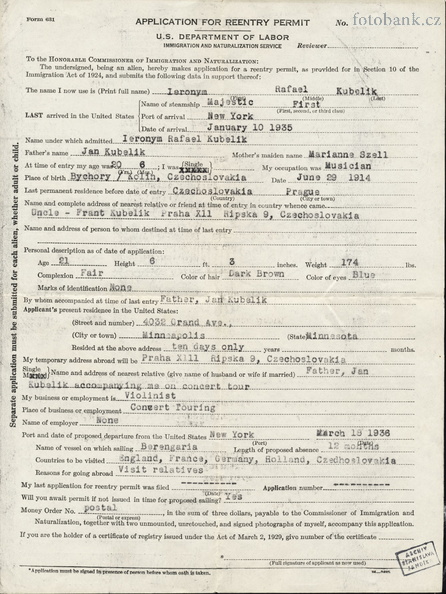 Form 631
fotobank.cz
APPLICATION FOR REENTRY PERMIT No.
U. S. DEPARTMENT OF LABOR
IMMIGRATION AND NATURALIZATION SERVICE Reviewer
To the HONORABLE COMMISSIONER OF IMMIGRATION AND NATURALIZATION:
The undersigned, being an alien, hereby makes application for a reentry permit, as provided for in Section 10 of the
Immigration Act of 1924, and submits the following data in support thereof:
The name I now use is (Print full name) Ieronym Rafael Kubelik
(First) (Middle) (Last)
Name of steamship Majestic First
(First, second, or third class)
LAST arrived in the United States Port of arrival New York
Date of arrival January 10 1935
Name under which admitted Ieronym Rafael Kubelik
Father's name Jan Kubelik Mother's maiden name Marianne Szell
At time of entry my age was 20 6; I was Single My occupation was Musician
(Yrs.) (Mos.)
Place of birth Bychory / Kolin, Czechoslovakia Date June 29 1914
Last permanent residence before date of entry Czechoslovakia Prague
(Country) (City or town)
Name and complete address of nearest relative or friend at time of entry in country whence came
Uncle - Frant Kubelik Praha XII Ripska 9, Czechoslovakia
Name and address of person to whom destined at time of last entry
Personal description as of date of application:
Age 21 Height 6 ft. 3 inches. Weight 174 lbs.
Complexion Fair Color of hair Dark Brown Color of eyes Blue
Marks of identification None
By whom accompanied at time of last entry Father, Jan Kubelik
Applicant's present residence in the United States:
(Street and number) 4032 Grand Ave.,
(City or town) Minneapolis (State) Minnesota
Resided at the above address ten days only years months.
My temporary address abroad will be Praha XIII Ripska 9, Czechoslovakia
Single Name and address of nearest relative (give name of husband or wife if married) Father, Jan
Kubelik accompanying me on concert tour
My business or employment is Violinist
Place of business or employment Concert Touring
Name of employer None
Port and date of proposed departure from the United States New York March 18 1936
(Port) (Date)
Name of vessel on which sailing Berengaria Length of proposed absence 12 months
Countries to be visited England, France, Germany, Holland, Czechoslovakia
Reasons for going abroad Visit relatives
My last application for reentry permit was filed ---------- Application number ----------
(Date)
Will you await permit if not issued in time for proposed sailing? Yes
Money Order No. postal, in the sum of three dollars, payable to the Commissioner of Immigration and
(Postal or express)
Naturalization, together with two unmounted, unretouched, and signed photographs of myself, accompany this application.
If you are the holder of a certificate of registry issued under the Act of March 2, 1929, give number of the certificate
(Full signature of applicant as now used)
*Application must be signed in presence of person before whom oath is taken.
Separate application must be submitted for each alien, whether adult or child.
ARCHIV